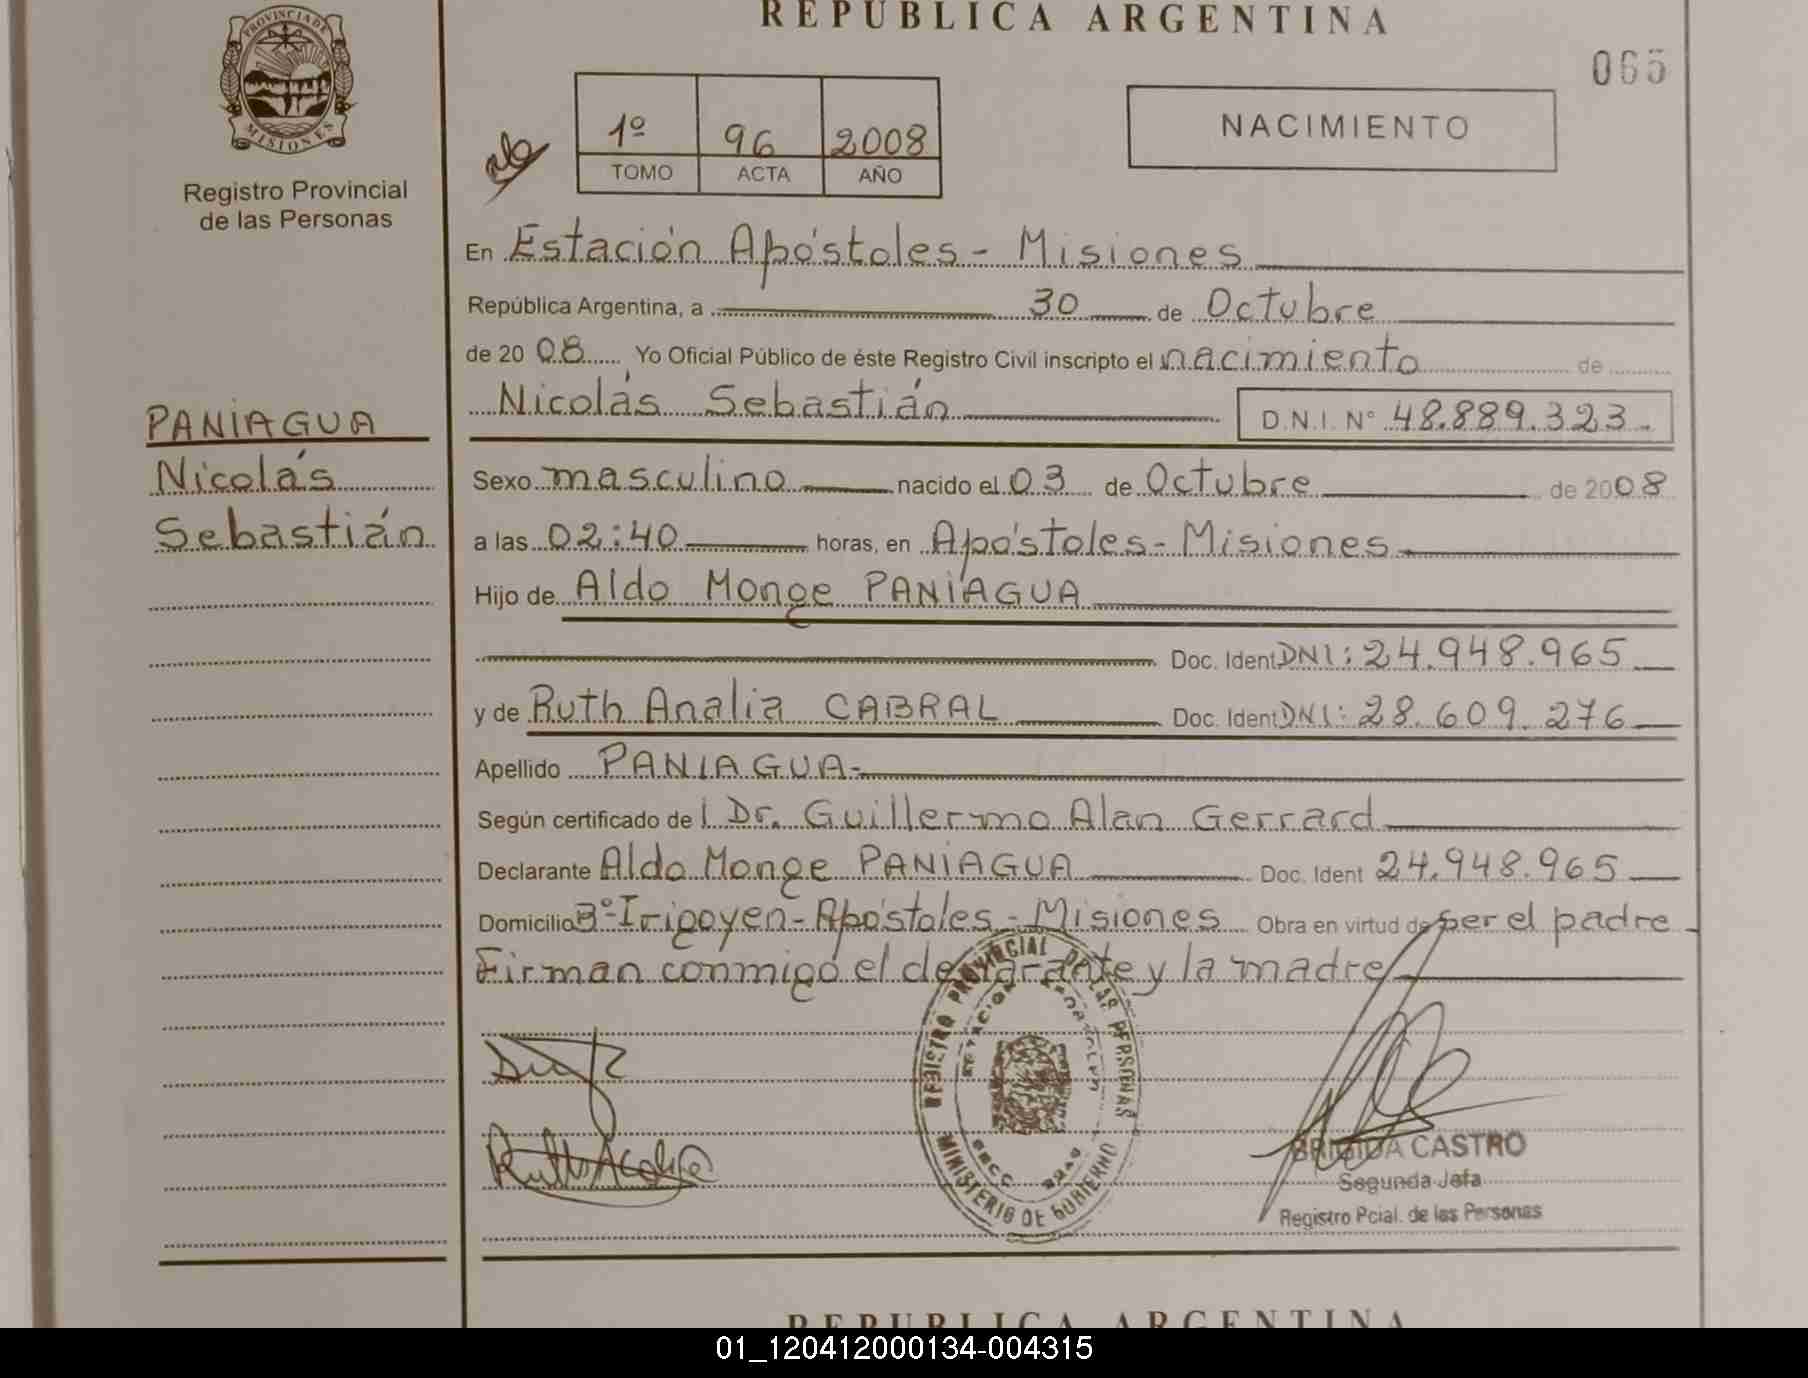 REPÚBLICA ARGENTINA
065
PROVINCIA DE
MISIONES
Registro Provincial
de las Personas
1º 96 2008
TOMO ACTA AÑO
NACIMIENTO
En Estación Apóstoles - Misiones
República Argentina, a 30 de Octubre
de 20 08 Yo Oficial Público de éste Registro Civil inscripto el nacimiento de
Nicolás Sebastián D.N.I. Nº 48.889.323.
PANIAGUA
Nicolás
Sebastián
Sexo masculino nacido el 03 de Octubre de 2008
a las 02:40 horas, en Apóstoles - Misiones
Hijo de Aldo Monge PANIAGUA
Doc. Ident DNI: 24.948.965
y de Ruth Analia CABRAL Doc. Ident DNI: 28.609.276
Apellido PANIAGUA-
Según certificado de l Dr. Guillermo Alan Gerrard
Declarante Aldo Monge PANIAGUA Doc. Ident 24.948.965
Domicilio Bº Irigoyen - Apóstoles - Misiones Obra en virtud de ser el padre
Firman conmigo el declarante y la madre
REGISTRO PROVINCIAL DE LAS PERSONAS
MINISTERIO DE GOBIERNO
BRIGIDA CASTRO
Segunda Jefa
Registro Pcial. de las Personas
REPUBLICA ARGENTINA
01_120412000134-004315